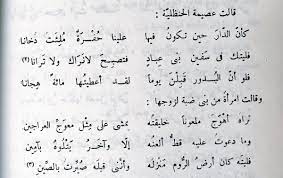 قالت عصيمة الحنظليَّة :
كأنّ الدّارَ حين تكونُ فيها علينا حُفْرَةٌ مُلِئَتْ دُخانا
فليتك في سَفين بَنِي عبادٍ فتصبحَ لانراك ولا ترانا (٢)
فلو أنّ البُدور قَبِلْنَ يوماً لقد أعطيتُها مائةً هِجانا
وقالت امرأةٌ من بنى ضبة لزوجها :
تراه أَهْوَجَ ملعوناً خليقتُه يمشى على مِثْلِ مُعْوَجِّ العراجين
وما دعوتُ عليه قَطُّ ألعنُه إلا وآخَرُ يتلُوه بآمِينِ
فليتَه كان أرضَ الرُّوم مَنزِلُه وأننى قبلَه صُيِّرتُ بالصِّين (٣)